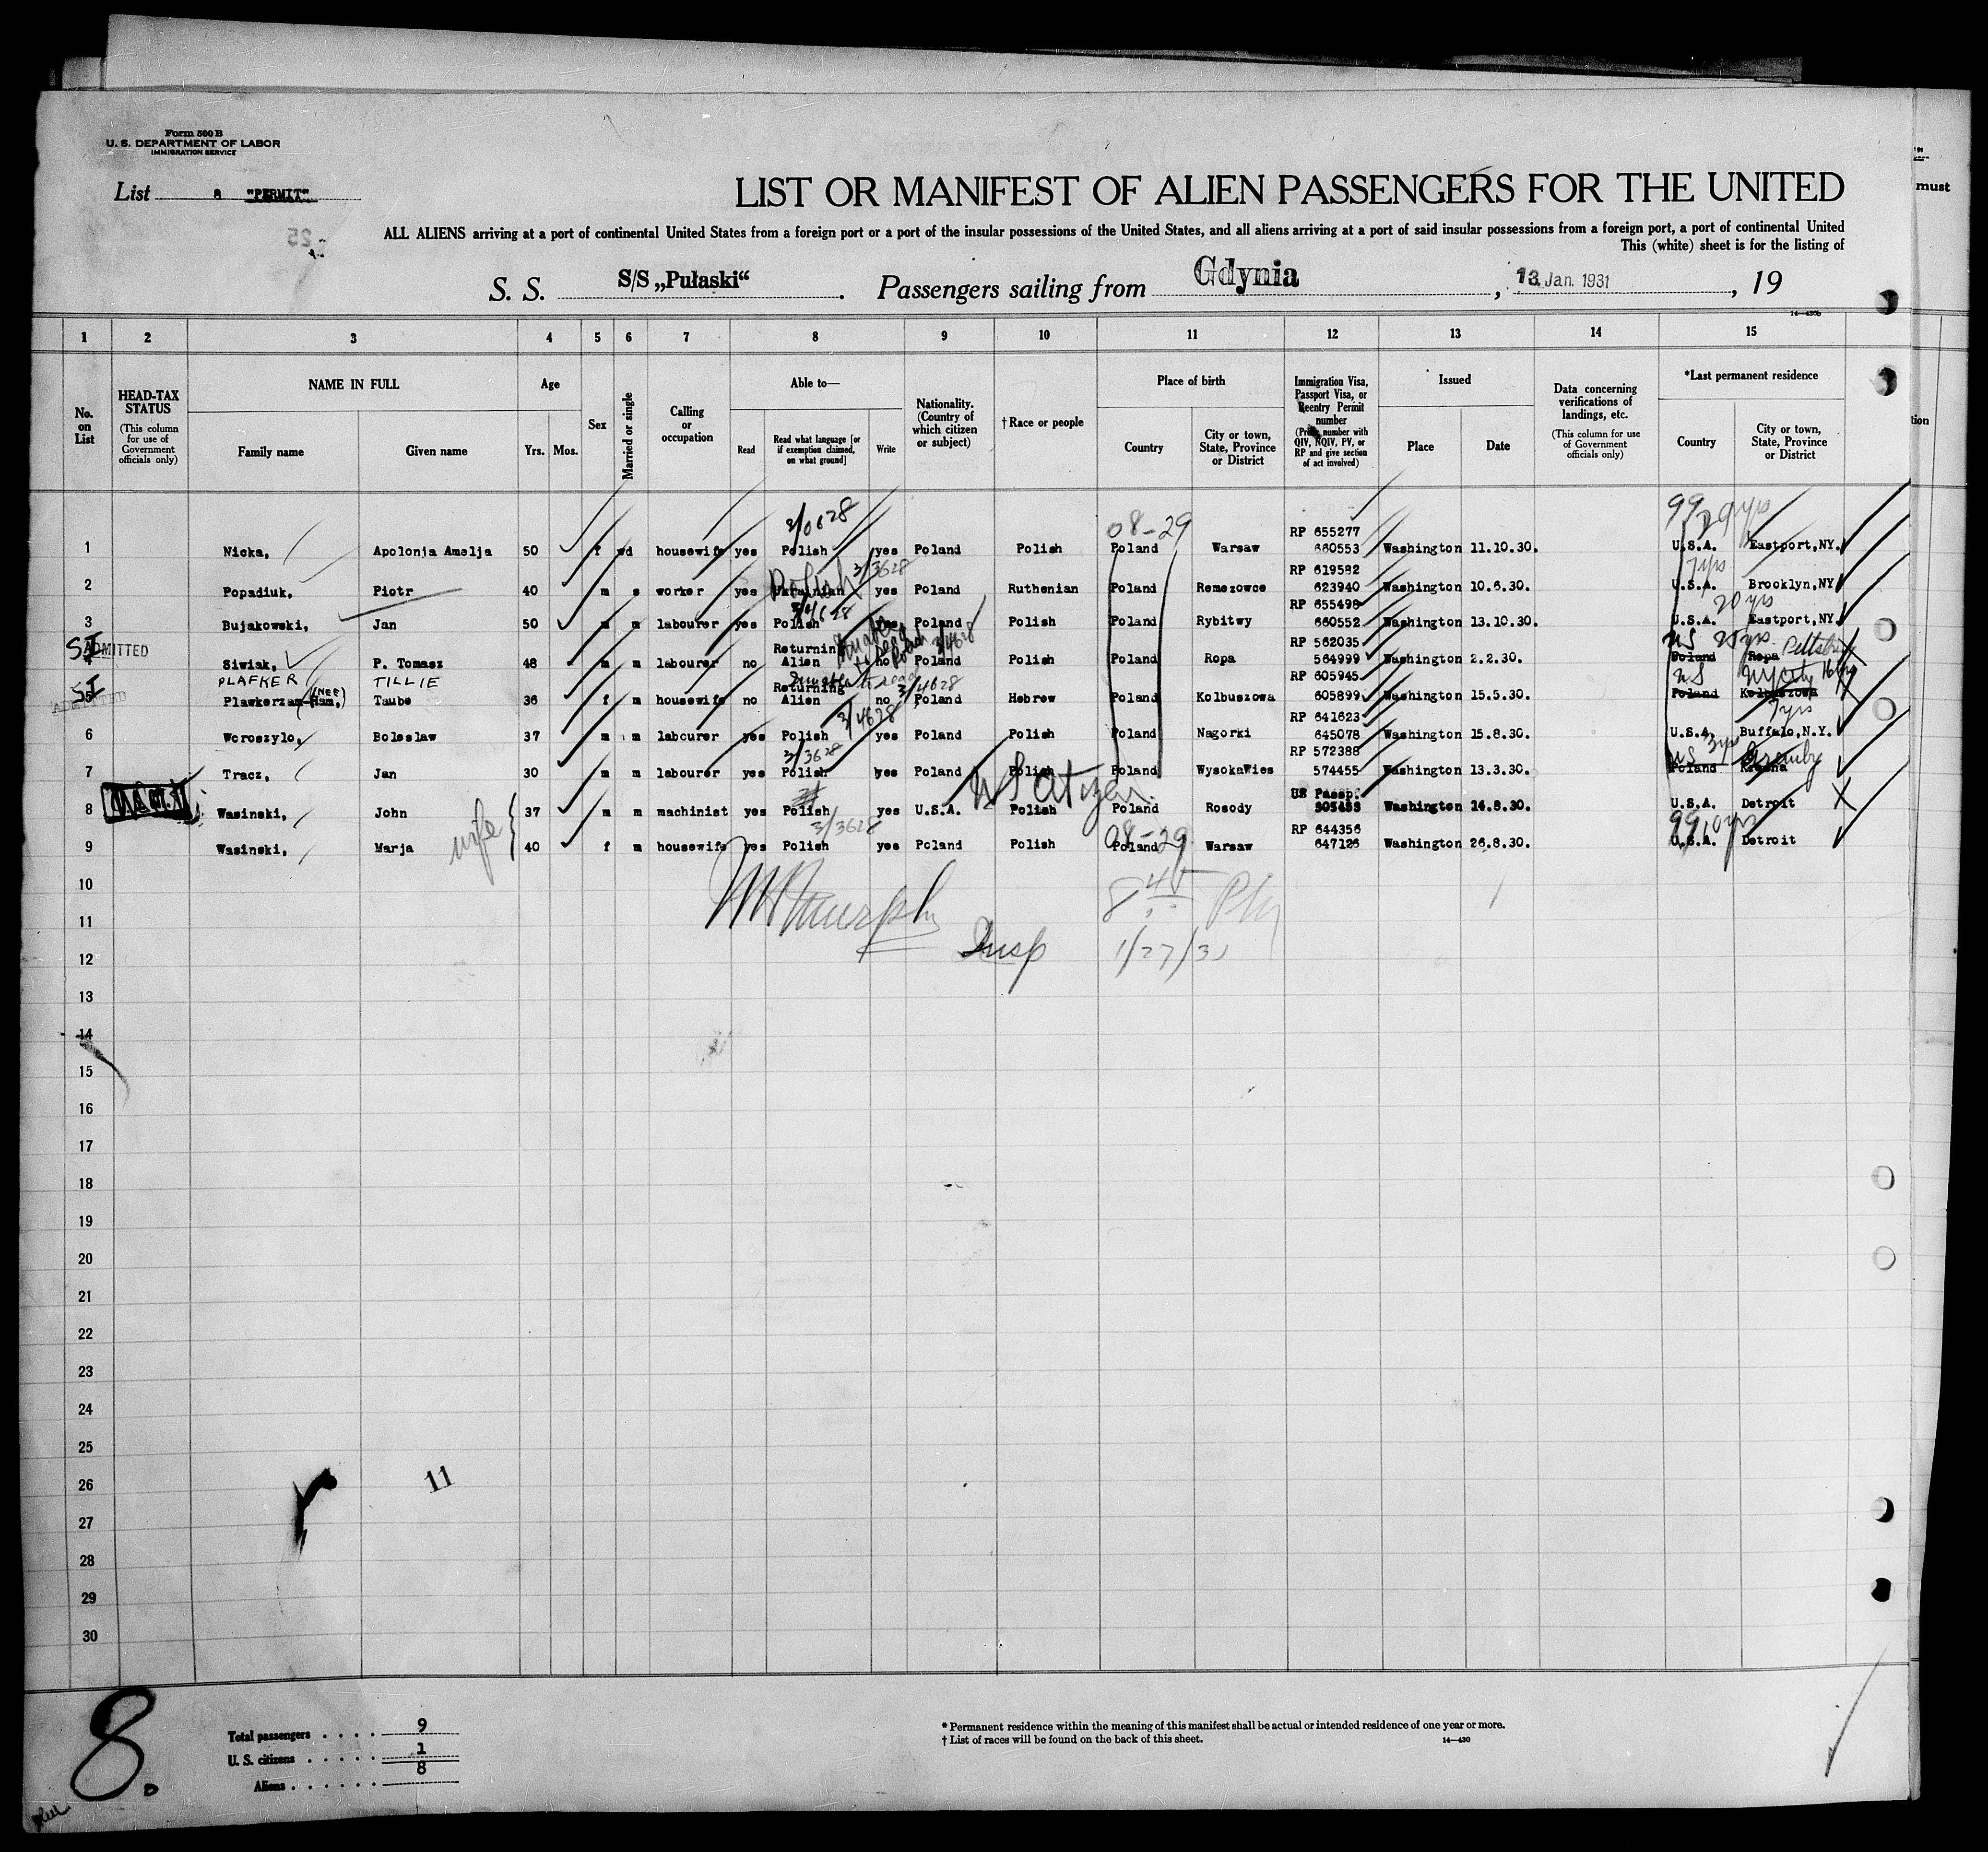 Form 500 B
U. S. DEPARTMENT OF LABOR
IMMIGRATION SERVICE
List 8 "PERMIT"
LIST OR MANIFEST OF ALIEN PASSENGERS FOR THE UNITED
must
ALL ALIENS arriving at a port of continental United States from a foreign port or a port of the insular possessions of the United States, and all aliens arriving at a port of said insular possessions from a foreign port, a port of continental United
This (white) sheet is for the listing of
S. S. S/S „Pułaski“ . Passengers sailing from Gdynia , 13. Jan. 1931 , 19
14—430b
1 2 3 4 5 6 7 8 9 10 11 12 13 14 15
No. on List
HEAD-TAX STATUS
(This column for use of Government officials only)
NAME IN FULL
Family name Given name
Age
Yrs. Mos.
Sex
Married or single
Calling or occupation
Able to—
Read
Read what language [or if exemption claimed, on what ground]
Write
Nationality. (Country of which citizen or subject)
† Race or people
Place of birth
Country
City or town, State, Province or District
Immigration Visa, Passport Visa, or Reentry Permit number
(Prefix number with QIV, NQIV, PV, or RP and give section of act involved)
Issued
Place Date
Data concerning verifications of landings, etc.
(This column for use of Government officials only)
*Last permanent residence
Country
City or town, State, Province or District
tion
3/0628 08-29 RP 655277 99 20 yrs
1 Nicka, Apolonja Amelja 50 f wd housewife yes Polish yes Poland Polish Poland Warsaw 660553 Washington 11.10.30. U.S.A. Eastport,NY.
Polish 3/3628 RP 619582 7 yrs
2 Popadiuk, Piotr 40 m s worker yes Ukrainian yes Poland Ruthenian Poland Remezowce 623940 Washington 10.6.30. U.S.A. Brooklyn,NY
3/4628 RP 655498 20 yrs
3 Bujakowski, Jan 50 m m labourer yes Polish yes Poland Polish Poland Rybitwy 660552 Washington 13.10.30. U.S.A. Eastport,NY.
SI ADMITTED Returning Unable to read Polish 3/4628 RP 562035 US 25 yrs. Pittsburg
4 Siwiak, P. Tomasz 48 m m labourer no Alien no Poland Polish Poland Ropa 564999 Washington 2.2.30. Poland Ropa
SI ADMITTED PLAFKER TILLIE Unable to read Returning 3/4628 RP 605945 US NY City 16 yrs
5 Plawkerzam-Ham, (NEE) Taube 36 f m housewife no Alien no Poland Hebrew Poland Kolbuszowa 605899 Washington 15.5.30. Poland Kolbuszowa
3/4628 RP 641623 7 yrs
6 Woroszylo, Boleslaw 37 m m labourer yes Polish yes Poland Polish Poland Nagorki 645078 Washington 15.8.30. U.S.A. Buffalo,N.Y.
3/3628 RP 572388 US 3 yrs
7 Tracz, Jan 30 m m labourer yes Polish yes Poland Polish Poland WysokaWies 574455 Washington 13.3.30. Poland
US Citizen US Passp.
8 Wasinski, John 37 m m machinist yes Polish yes U.S.A. Polish Poland Rosody Washington 14.8.30. U.S.A. Detroit
wife 3/3628 08-29 RP 644356 99 10 yrs
9 Wasinski, Marja 40 f m housewife yes Polish yes Poland Polish Poland Warsaw 647126 Washington 26.8.30. U.S.A. Detroit
10
11 Murphy 8 45 PM
12 Insp 1/27/31
13
14
15
16
17
18
19
20
21
22
23
24
25
26 11
27
28
29
30
8.
Total passengers . . . . 9
U. S. citizens . . . . . 1
Aliens . . . . . . 8
* Permanent residence within the meaning of this manifest shall be actual or intended residence of one year or more.
† List of races will be found on the back of this sheet.
14—430